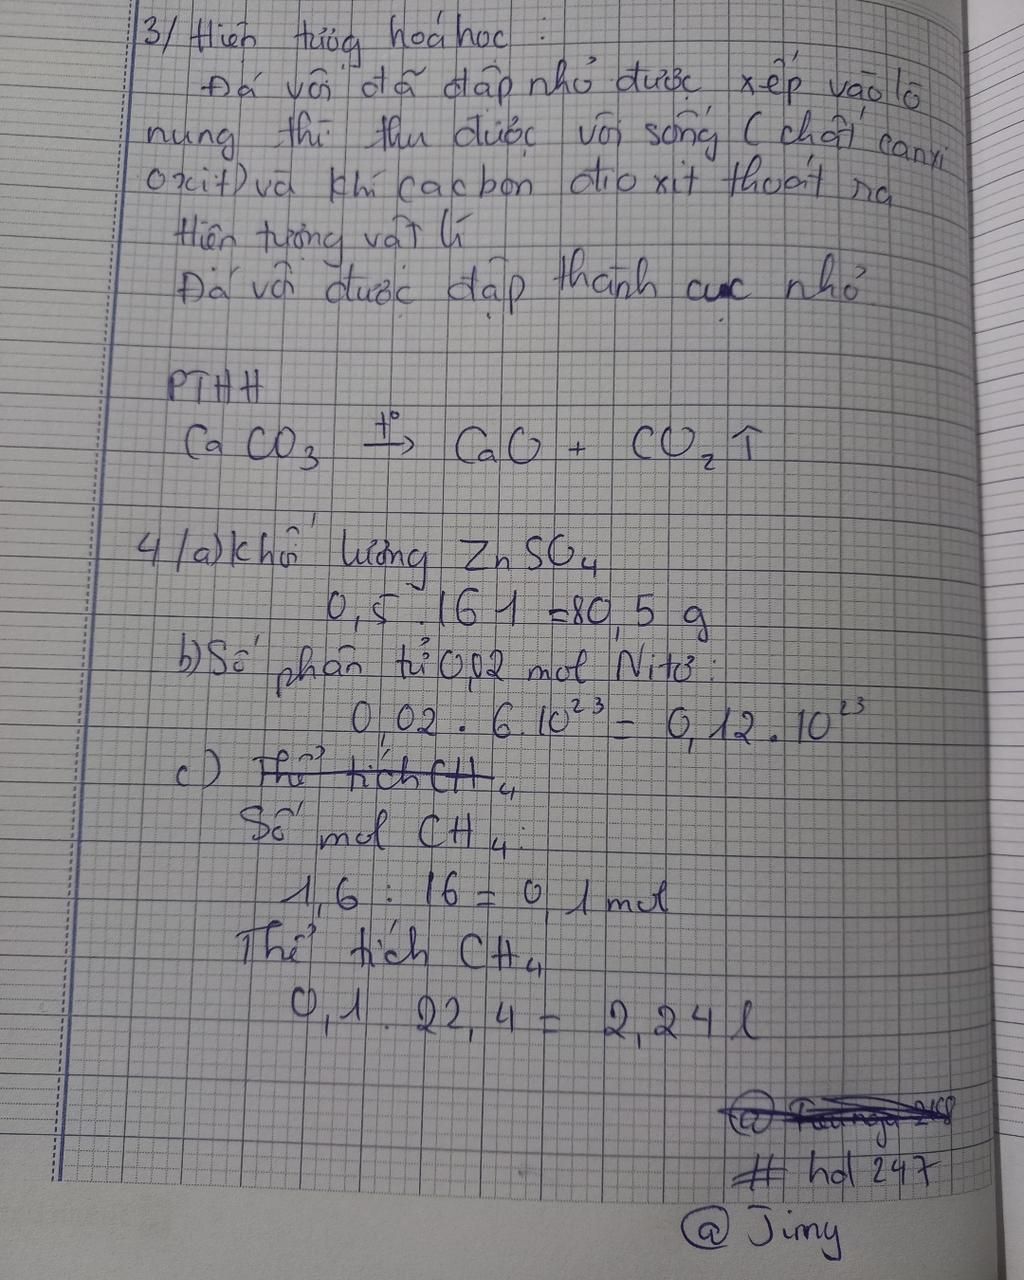 3/ Hiện tượng hoá học :
Đá vôi đã đập nhỏ được xếp vào lò
nung thì thu được vôi sống ( chất canxi
oxit) và khí cacbon đio xit thoát ra
Hiện tượng vật lí
Đá vôi được đập thành cục nhỏ
PTHH
CaCO₃ →t° CaO + CO₂ ↑
4/a) khối lượng ZnSO₄
0,5 . 161 = 80,5 g
b) Số phân tử 0,02 mol Nitơ :
0,02 . 6.10²³ = 0,12 . 10²³
c) Thể tích CH₄
Số mol CH₄ :
1,6 : 16 = 0,1 mol
Thể tích CH₄
0,1 . 22,4 = 2,24 l
# hd 247
@ Jimy